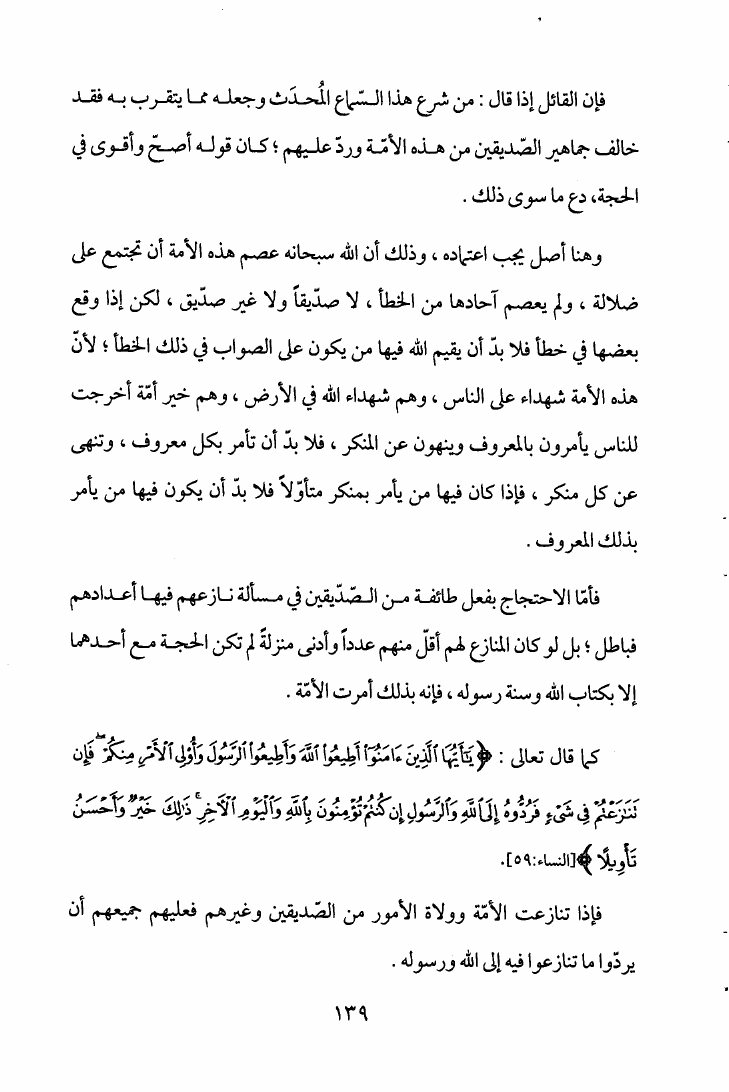 فإن القائل إذا قال : من شرع هذا السّماع المُحدَث وجعله مما يتقرب به فقد
خالف جماهير الصّديقين من هذه الأمّة وردّ عليهم ؛ كان قوله أصحّ وأقوى في
الحجة، دع ما سوى ذلك .
وهنا أصل يجب اعتماده ، وذلك أن الله سبحانه عصم هذه الأمة أن تجتمع على
ضلالة ، ولم يعصم آحادها من الخطأ ، لا صدّيقاً ولا غير صدّيق ، لكن إذا وقع
بعضها في خطأ فلا بدّ أن يقيم الله فيها من يكون على الصواب في ذلك الخطأ ؛ لأنّ
هذه الأمة شهداء على الناس ، وهم شهداء الله في الأرض ، وهم خير أمّة أخرجت
للناس يأمرون بالمعروف وينهون عن المنكر ، فلا بدّ أن تأمر بكل معروف ، وتنهى
عن كل منكر ، فإذا كان فيها من يأمر بمنكر متأوّلاً فلا بدّ أن يكون فيها من يأمر
بذلك المعروف .
فأمّا الاحتجاج بفعل طائفة من الصّدّيقين في مسألة نازعهم فيها أعدادهم
فباطل ؛ بل لو كان المنازع لهم أقلّ منهم عدداً وأدنى منزلةً لم تكن الحجة مع أحدهما
إلا بكتاب الله وسنة رسوله ، فإنه بذلك أمرت الأمّة .
كما قال تعالى : ﴿ يَٰٓأَيُّهَا ٱلَّذِينَ ءَامَنُوٓاْ أَطِيعُواْ ٱللَّهَ وَأَطِيعُواْ ٱلرَّسُولَ وَأُوْلِى ٱلْأَمْرِ مِنكُمْ ۖ فَإِن
تَنَٰزَعْتُمْ فِى شَىْءٍ فَرُدُّوهُ إِلَى ٱللَّهِ وَٱلرَّسُولِ إِن كُنتُمْ تُؤْمِنُونَ بِٱللَّهِ وَٱلْيَوْمِ ٱلْءَاخِرِ ۚ ذَٰلِكَ خَيْرٌ وَأَحْسَنُ
تَأْوِيلًا ﴾ [النساء:٥٩].
فإذا تنازعت الأمّة وولاة الأمور من الصّديقين وغيرهم فعليهم جميعهم أن
يردّوا ما تنازعوا فيه إلى الله ورسوله .
١٣٩